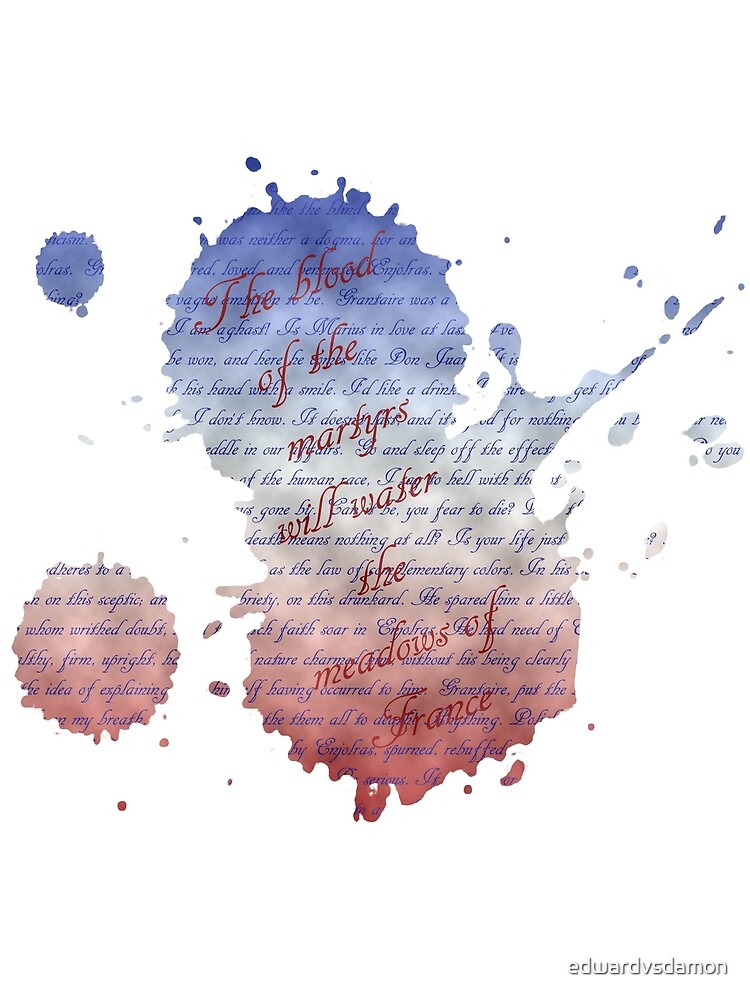 like the blind
was neither a dogma, nor an
olras. red, loved, and venerated Enjolras.
thing? vague ambition to be. Grantaire was a
I am aghast! Is Marius in love at las I've
be won, and here he comes like Don Juan It is
his hand with a smile. I'd like a drink sire get
I don't know. It doesn't last, and it's good for nothing. you b ne
eddle in our affairs. Go and sleep off the effect Do you
of the human race, I to hell with the
gone by. Can it be, you fear to die?
death means nothing at all? Is your life just
adheres to a as the law of complementary colors. In his
n on this sceptic; an briety, on this drunkard. He spared him a little
whom writhed doubt, faith soar in Enjolras. He had need of
lthy, firm, upright, nature charmed him, without his being clearly
the idea of explaining him f having occurred to him. Grantaire, put the
n my breath the them all to anything.
by Enjolras, spurned, rebuffed
serious. If or
The blood
of the
martyrs
will water
the
meadows of
France
edwardvsdamon